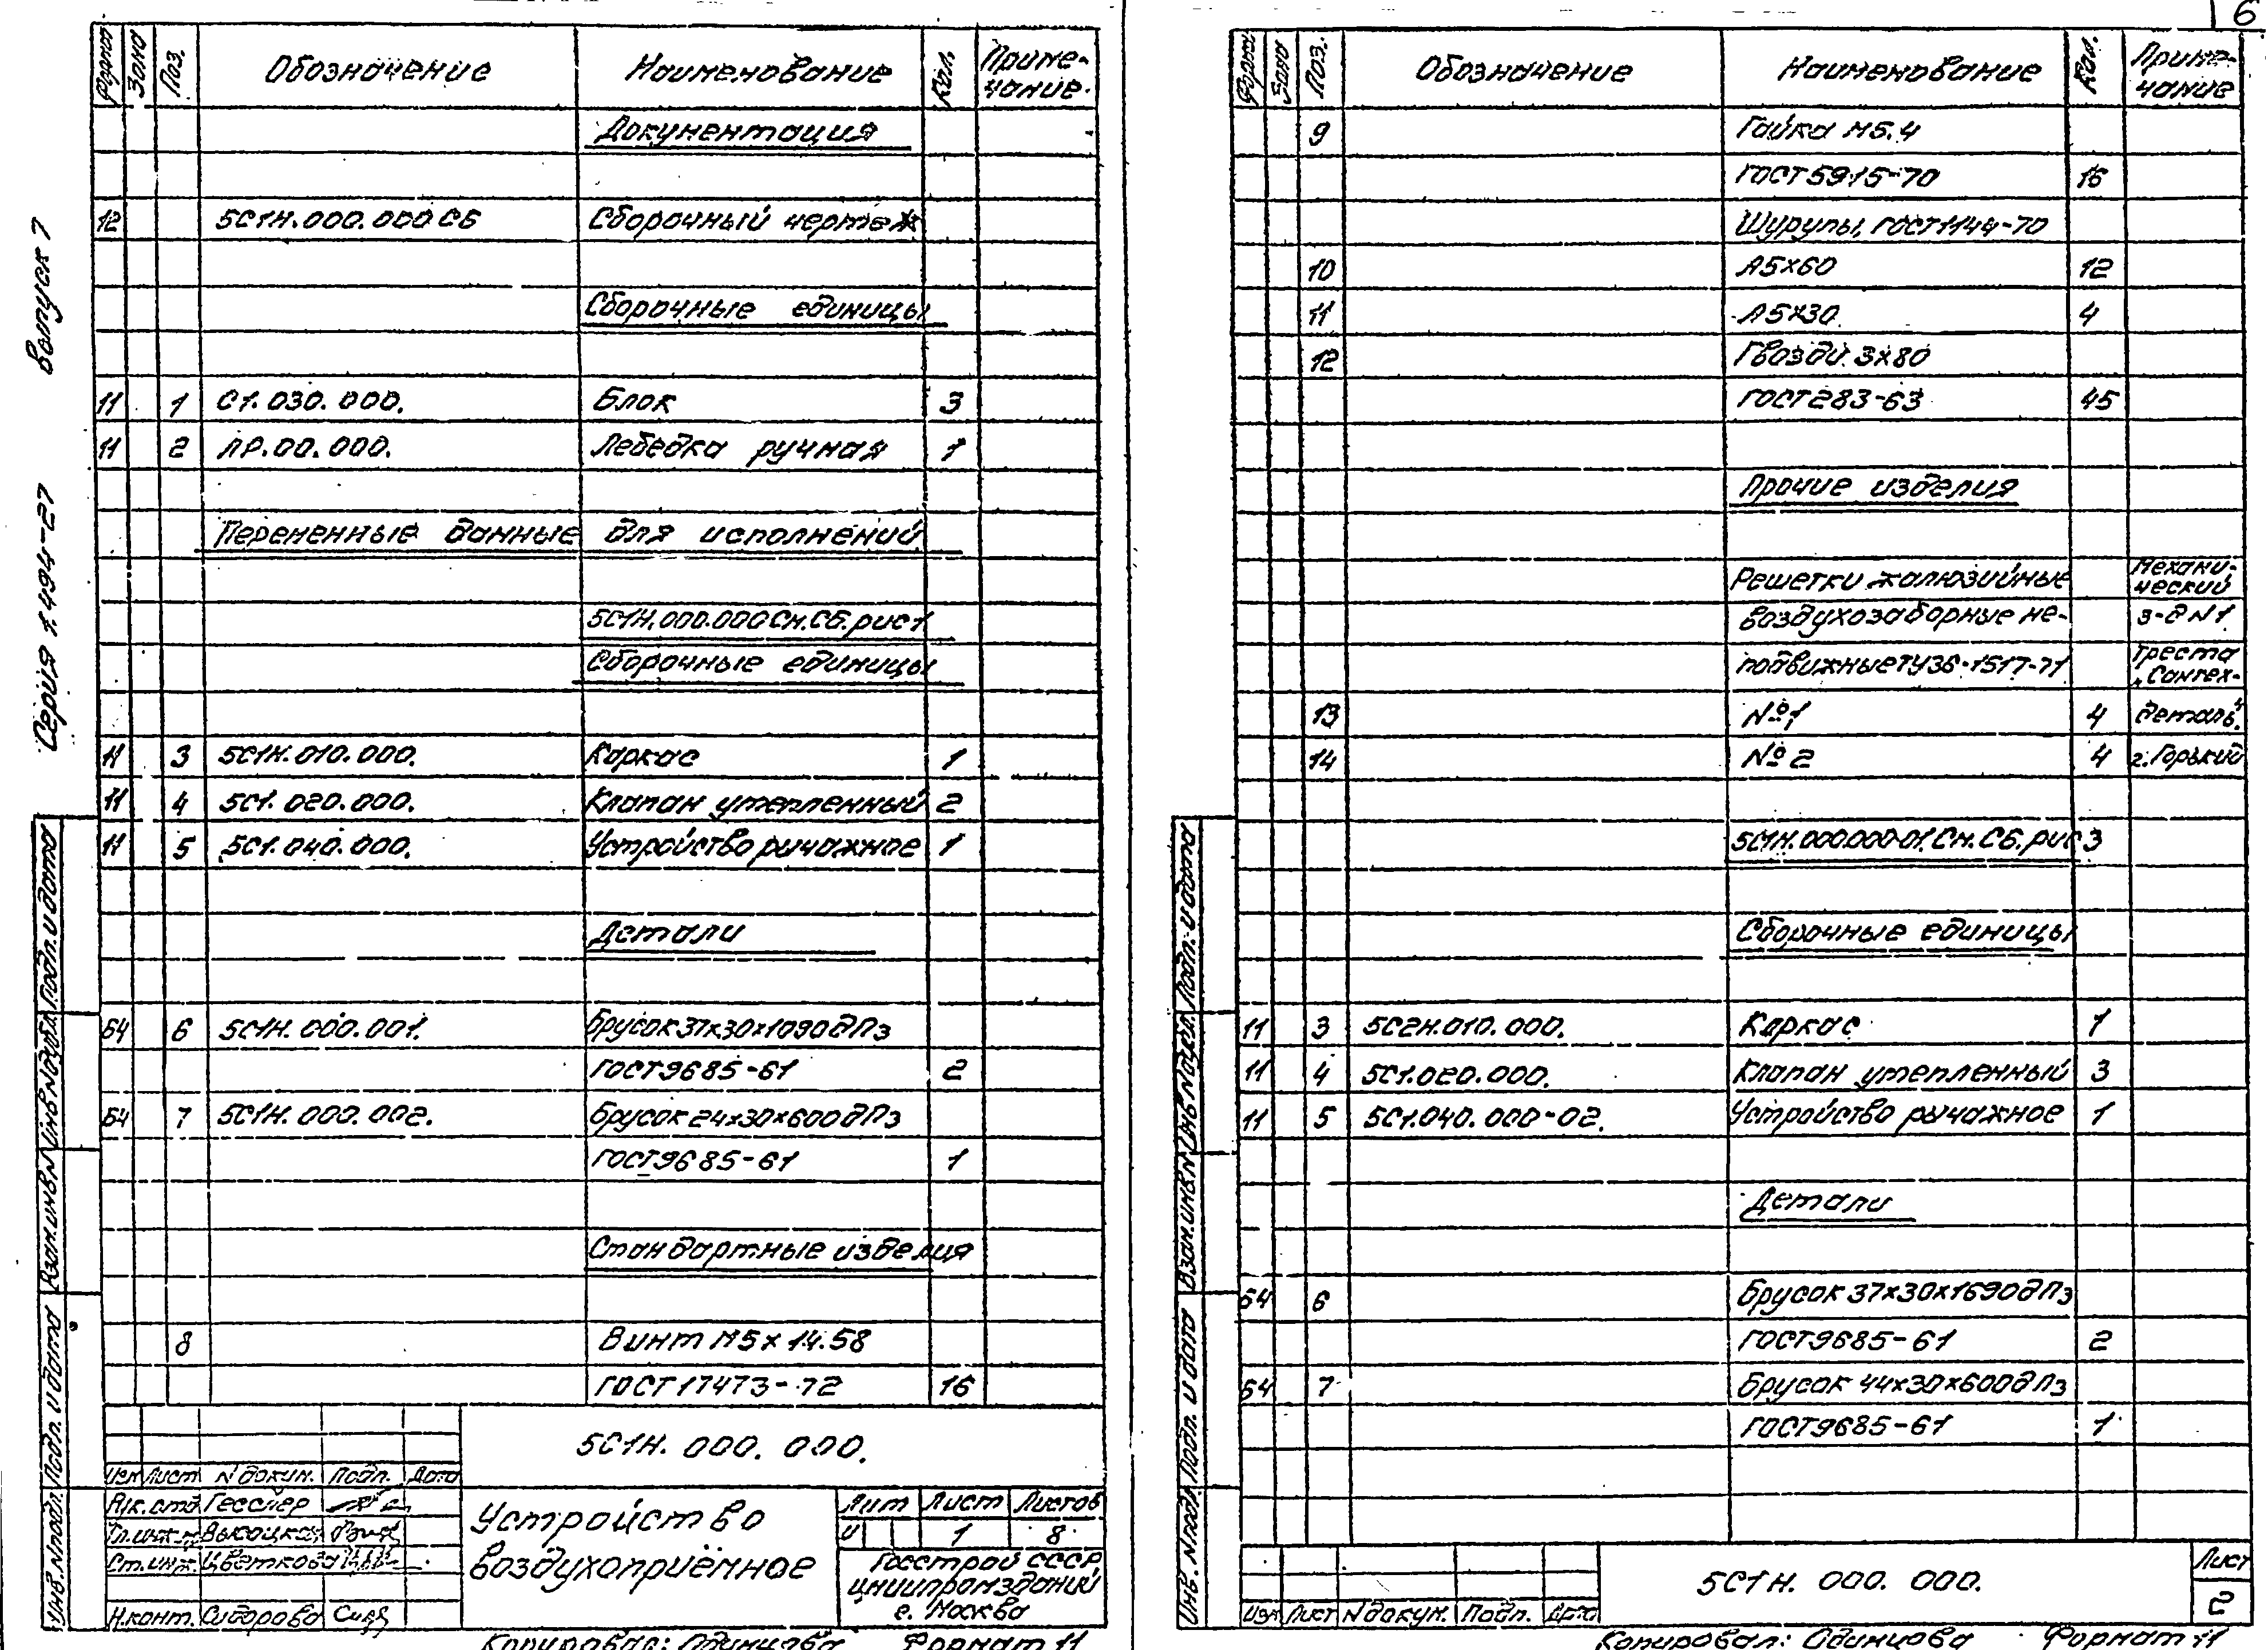 6
Выпуск 7
Серия 1.494-27
Формат Зона Поз. Обозначение Наименование Кол. Приме-
чание.
Документация
12 5С1Н.000.000 СБ Сборочный чертеж
Сборочные единицы
11 1 С1.030.000. Блок 3
11 2 ЛР.00.000. Лебедка ручная 1
Переменные данные для исполнений
5С1Н.000.000 См.СБ.рис1
Сборочные единицы
11 3 5С1Н.010.000. Каркас 1
11 4 5С1.020.000. Клапан утепленный 2
11 5 5С1.040.000. Устройство рычажное 1
Детали
БЧ 6 5С1Н.000.001. Брусок 37х30х1090 дПз
ГОСТ9685-61 2
БЧ 7 5С1Н.000.002. Брусок 24х30х600 дПз
ГОСТ9685-61 1
Стандартные изделия
8 Винт М5х14.58
ГОСТ17473-72 16
5С1Н.000.000.
Изм Лист N докум. Подп. Дата
Рук.отд. Гесслер
Гл.инж. Высоцкая
Ст.инж. Цветкова
Н.конт. Сидорова
Устройство
воздухоприёмное
Лит Лист Листов
И 1 8
Госстрой СССР
ЦНИИпромзданий
г. Москва
Инв.Nподл. Подп. и дата Взам.инв.N Инв.Nдубл. Подп. и дата
Копировал: Одинцова Формат 11
Формат Зона Поз. Обозначение Наименование Кол. Приме-
чание
9 Гайка М5.4
ГОСТ5915-70 16
Шурупы, ГОСТ1144-70
10 А5х60 12
11 А5х30 4
12 Гвозди 3х80
ГОСТ283-63 45
Прочие изделия
Решетки жалюзийные Механи-
ческий
воздухозаборные не- з-д N1
подвижные ТУ36-1517-71 треста
„Сантех-
13 №1 4 деталь“
14 №2 4 г.Горький
5С1Н.000.000-01 См.СБ.рис3
Сборочные единицы
11 3 5С2Н.010.000. Каркас 1
11 4 5С1.020.000. Клапан утепленный 3
11 5 5С1.040.000-02. Устройство рычажное 1
Детали
БЧ 6 Брусок 37х30х1690 дПз
ГОСТ9685-61 2
БЧ 7 Брусок 44х30х600 дПз
ГОСТ9685-61 1
5С1Н.000.000.
Лист
2
Изм Лист N докум. Подп. Дата
Инв.Nподл. Подп. и дата Взам.инв.N Инв.Nдубл. Подп. и дата
Копировал: Одинцова Формат 11